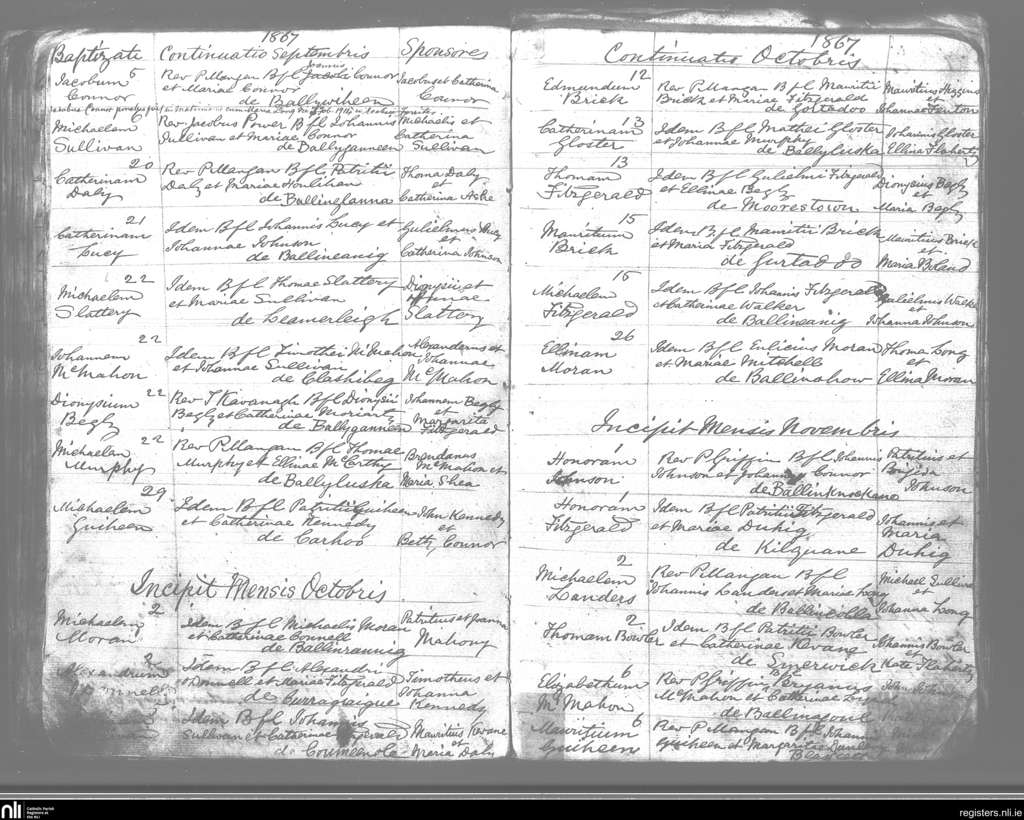 1867
Baptizati Continuatio Septembris Sponsores
Jacobum 5 Rev P Mangan B f l Jacobi Connor Jacobus et Catherina
Connor et Mariae Connor Connor
de Ballywiheen
Michaelem Rev Jacobus Power B f l Johannis Michaelis et
Sullivan Sullivan et Mariae Connor Catherina
de Ballyganneen Sullivan
20
Catherinam Rev P Mangan B f l Patritii Thoma Daly
Daly Daly et Mariae Houlihan et
de Ballinglanna Catherina Ashe
21
Catherinam Idem B f l Johannis Lucy et Gulielmus Lucy
Lucy Johannae Johnson et
de Ballineanig Catherina Johnson
22
Michaelem Idem B f l Thomae Slattery Dionysii et
Slattery et Mariae Sullivan
de Leamerleigh Slattery
22
Johannem Idem B f l Timothei McMahon Alexanderus et
McMahon et Johannae Sullivan Johannae
de Clashibeg McMahon
Dionysium 22 Rev T Kavanagh B f l Dionysii Johannem Begly
Begly Begly et Catherinae Moriarty et
de Ballyganneen Margarita
Fitzgerald
Michaelem 22 Rev P Mangan B f l Thomae Brendanus
Murphy Murphy et Ellinae McCrthy McMahon et
de Ballyluska Maria Shea
29
Michaelem Idem B f l Patritii Guiheen John Kennedy
Guiheen et Catherinae Kennedy et
de Carhoo Betty Connor
Incipit Mensis Octobris
Michaelem 2 Idem B f l Michaelis Moran Patritius et Joanna
Moran et Catherinae Connell Mahony
de Ballinrannig
2
Alexandrum Idem B f l Alexandri Timotheus et
O'Donnell et Mariae Fitzgerald Johanna
de Curragraigue Kennedy
Idem B f l Johannis Mauritius Kavane
Sullivan et Catherinae et
de Coumeenole Maria Daly
1867
Continuatio Octobris
12
Edmundum Rev P Mangan B f l Mauritii Mauritius
Brick Brick et Mariae Fitzgerald et
de Gortadoo Johannae Fenton
Catherinam 13 Idem B f l Mathei Gloster Johannis Gloster
Gloster et Johannae Murphy
de Ballyluska Ellina Flaherty
13
Thomam Idem B f l Gulielmi Fitzgerald Dionysius Begly
Fitzgerald et Ellinae Begly et
de Moorestown Maria Begly
15
Mauritium Idem B f l Mauritii Brick Mauritius Brick
Brick et Maria Fitzgerald et
de Gurtaddo Maria Boland
16
Michaelem Idem B f l Johannis Fitzgerald Gulielmus Walker
Fitzgerald et Catherinae Walker et
de Ballineanig Johanna Johnson
26
Ellinam Idem B f l Eulicius Moran Thoma Long
Moran et Mariae Mitchell et
de Ballinahow Ellina Moran
Incipit Mensis Novembris
1
Honoram Rev P Griffin B f l Johannis Patritius et
Johnson Johnson et Johanna Connor Brigida
de Ballinknockane Johnson
1
Honoram Idem B f l Patritii Fitzgerald Johannis et
Fitzgerald et Mariae Duhig Maria
de Kilquane Duhig
2
Michaelem Rev P Mangan B f l Michael
Landers Johannis Landers et Mariae Long et
de Johanna Long
2
Thomam Bowler Idem B f l Patritii Bowler Johannis Bowler
et Catherinae Kevane et
de Smerwick Kate Flaherty
6
Elizabethum Rev P Griffin B f l
McMahon McMahon et Catherinae
de
Mauritium 6 Rev P Mangan B f l Johannis
Guiheen Guiheen et Margaritae
nli Catholic Parish Registers at the NLI
registers.nli.ie